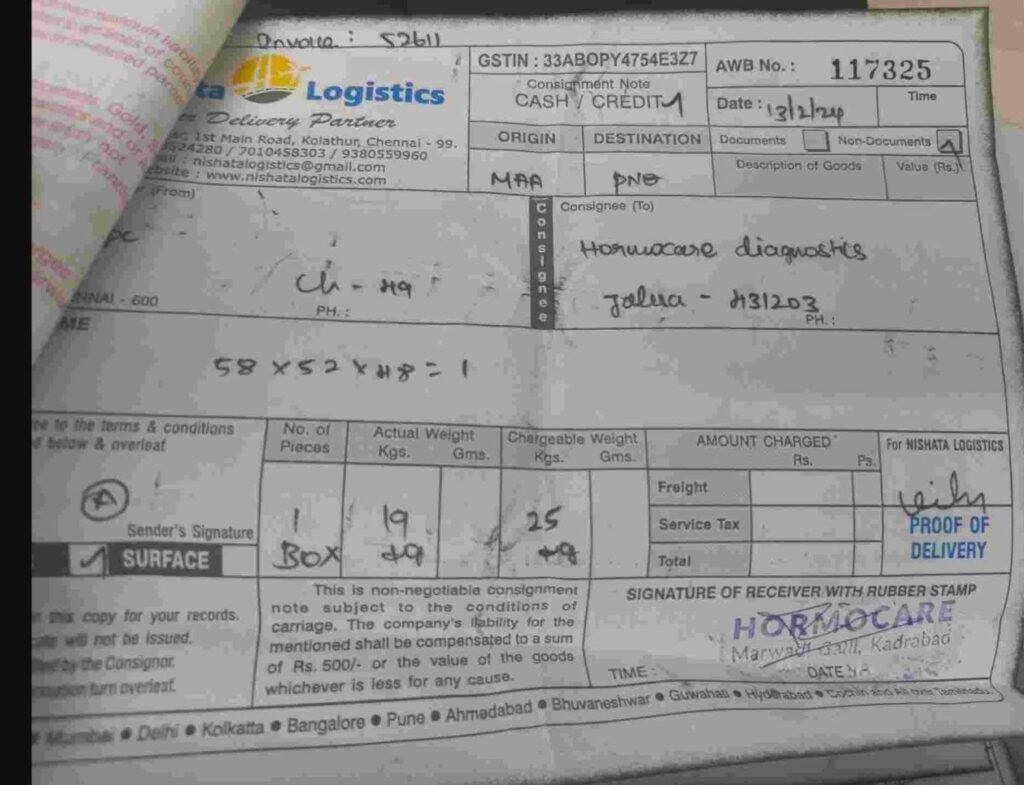 Invoice : 52611
GSTIN : 33ABOPY4754E3Z7
Consignment Note
CASH / CREDIT
AWB No. : 117325
Date : 13/2/24
Time
ta Logistics
Delivery Partner
1st Main Road, Kolathur, Chennai - 99.
24280 / 7010458303 / 9380559960
: nishatalogistics@gmail.com
bsite : www.nishatalogistics.com
ORIGIN
DESTINATION
MAA
PNQ
Documents
Non-Documents
Description of Goods
Value (Rs.)
(From)
Ch - 49
NNAI - 600
PH. :
Consignee
Consignee (To)
Hormocare diagnostics
Jalna - 431203
PH. :
ME
58 x 52 x 48 = 1
ee to the terms & conditions
d below & overleaf
A
Sender's Signature
SURFACE
No. of
Pieces
1
BOX
Actual Weight
Kgs. Gms.
19
Kg
Chargeable Weight
Kgs. Gms.
25
Kg
AMOUNT CHARGED
Rs. Ps.
Freight
Service Tax
Total
For NISHATA LOGISTICS
PROOF OF
DELIVERY
this copy for your records.
will not be issued.
by the Consignor.
turn overleaf.
This is non-negotiable consignment
note subject to the conditions of
carriage. The company's liability for the
mentioned shall be compensated to a sum
of Rs. 500/- or the value of the goods
whichever is less for any cause.
SIGNATURE OF RECEIVER WITH RUBBER STAMP
HORMOCARE
Marwadi Galli, Kadrabad
TIME :
DATE
Mumbai ● Delhi ● Kolkatta ● Bangalore ● Pune ● Ahmedabad ● Bhuvaneshwar ● Guwahati ● Hyderabad ● Cochin and All over Tamilnadu